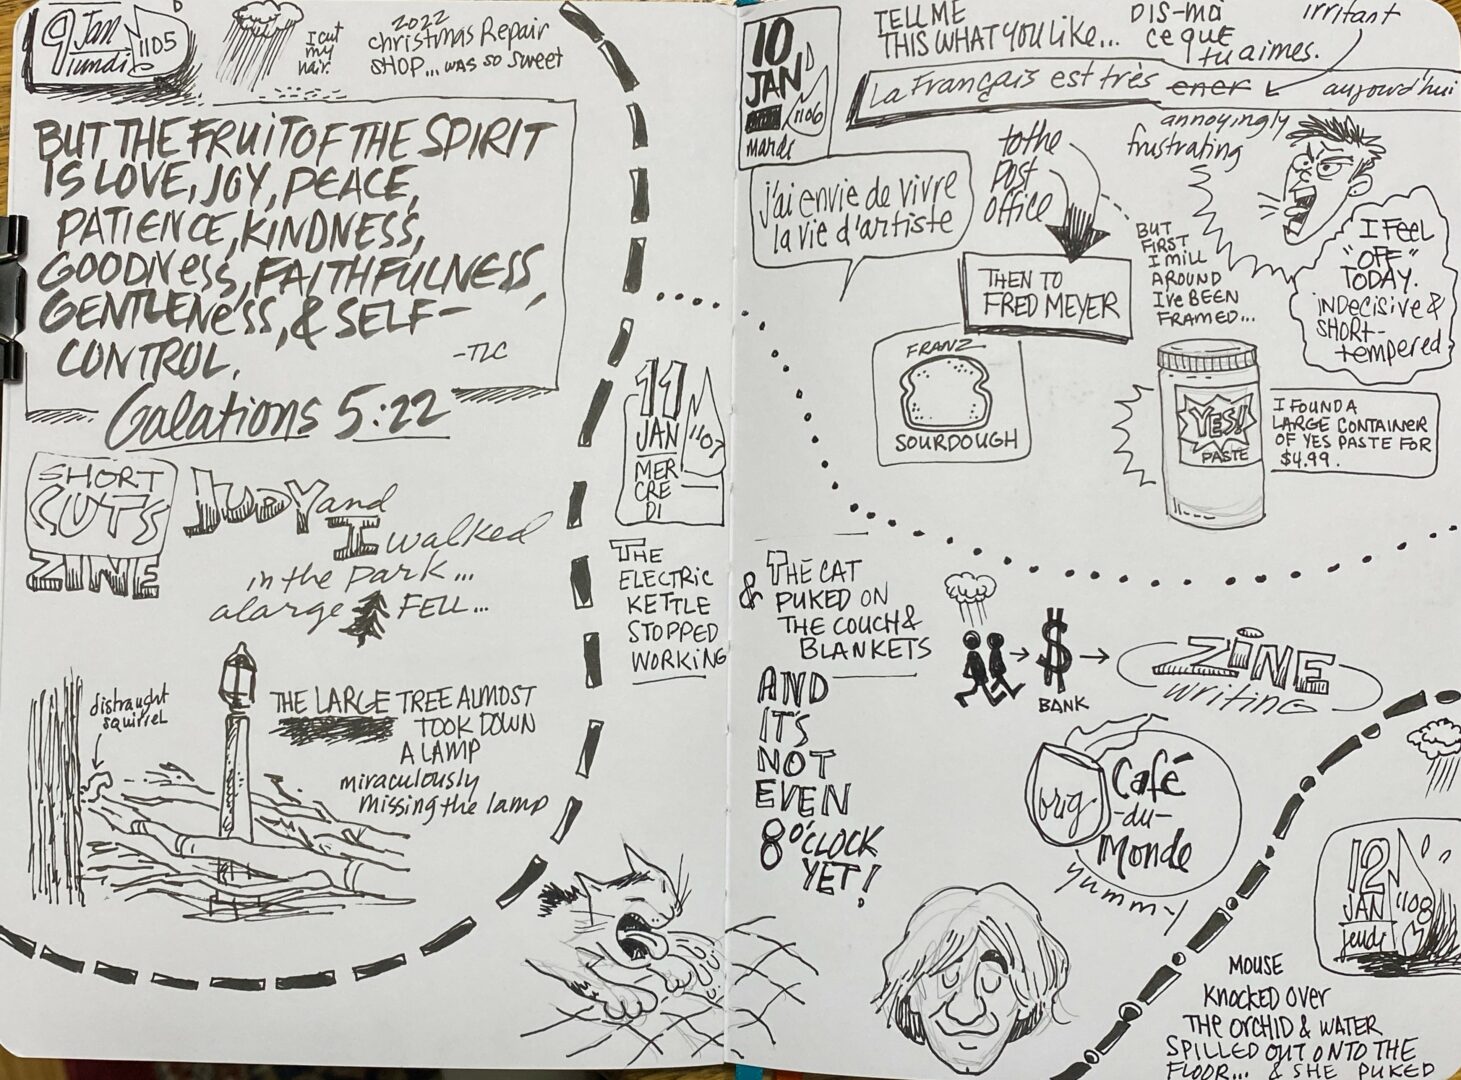 9 Jan
lundi
1105
I cut
my
hair.
2022
Christmas Repair
SHOP... was so sweet
BUT THE FRUIT OF THE SPIRIT
IS LOVE, JOY, PEACE,
PATIENCE, KINDNESS,
GOODNESS, FAITHFULNESS,
GENTLENESS, & SELF-
CONTROL.
-TLC
Galations 5:22
SHORT
CUTS
ZINE
JUDY and
I walked
in the park...
a large FELL...
distraught
squirrel
THE LARGE TREE ALMOST
TOOK DOWN
A LAMP
miraculously
missing the lamp
11
JAN
1107
MER
CRE
DI
THE
ELECTRIC
KETTLE
STOPPED
WORKING
& THE CAT
PUKED ON
THE COUCH &
BLANKETS
AND
IT'S
NOT
EVEN
8 O'CLOCK
YET!
10
JAN
1106
mardi
TELL ME
THIS WHAT YOU LIKE...
DIS-moi
ce que
tu aimes.
irritant
La Français est très ener aujourd'hui
annoyingly
frustrating
j'ai envie de vivre
la vie d'artiste
to the
post
office
THEN TO
FRED MEYER
BUT
FIRST
I MILL
AROUND
I'VE BEEN
FRAMED...
I FEEL
"OFF"
TODAY.
INDECISIVE &
SHORT-
tempered.
FRANZ
SOURDOUGH
YES!
PASTE
I FOUND A
LARGE CONTAINER
OF YES PASTE FOR
$4.99.
$
BANK
ZINE
writing
orig
Café
-du-
Monde
yumm-y
12
JAN
1108
jeudi
MOUSE
KNOCKED OVER
THE ORCHID & WATER
SPILLED OUT ONTO THE
FLOOR... & SHE PUKED